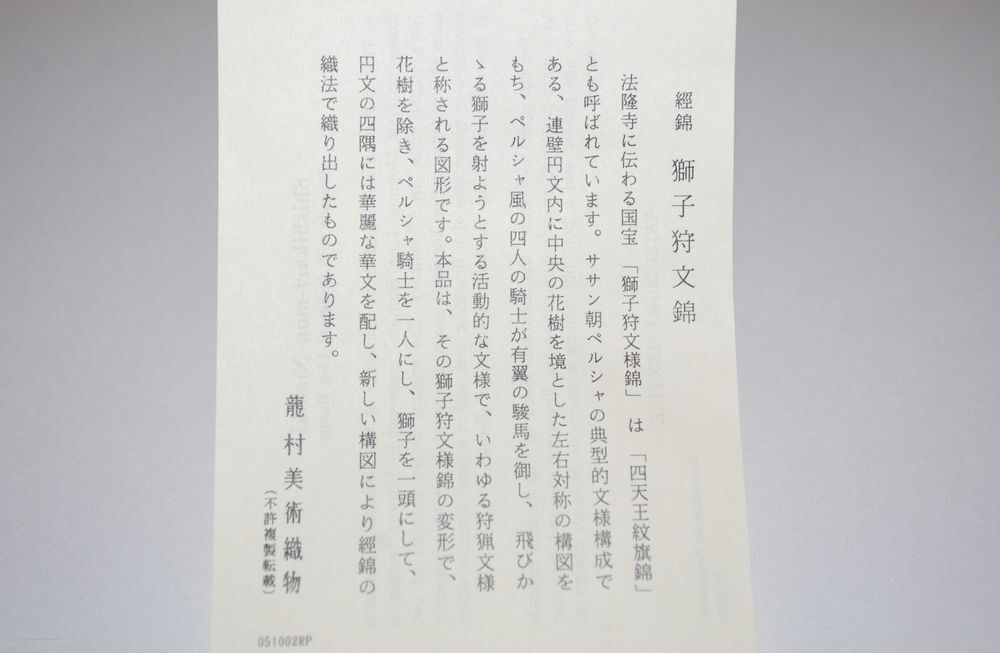 經錦 獅子狩文錦
法隆寺に伝わる国宝「獅子狩文様錦」は「四天王紋旗錦」
とも呼ばれています。ササン朝ペルシャの典型的文様構成で
ある、連璧円文内に中央の花樹を境とした左右対称の構図を
もち、ペルシャ風の四人の騎士が有翼の駿馬を御し、飛びか
ゝる獅子を射ようとする活動的な文様で、いわゆる狩猟文様
と称される図形です。本品は、その獅子狩文様錦の変形で、
花樹を除き、ペルシャ騎士を一人にし、獅子を一頭にして、
円文の四隅には華麗な華文を配し、新しい構図により經錦の
織法で織り出したものであります。
龍村美術織物
（不許複製転載）
051002RP